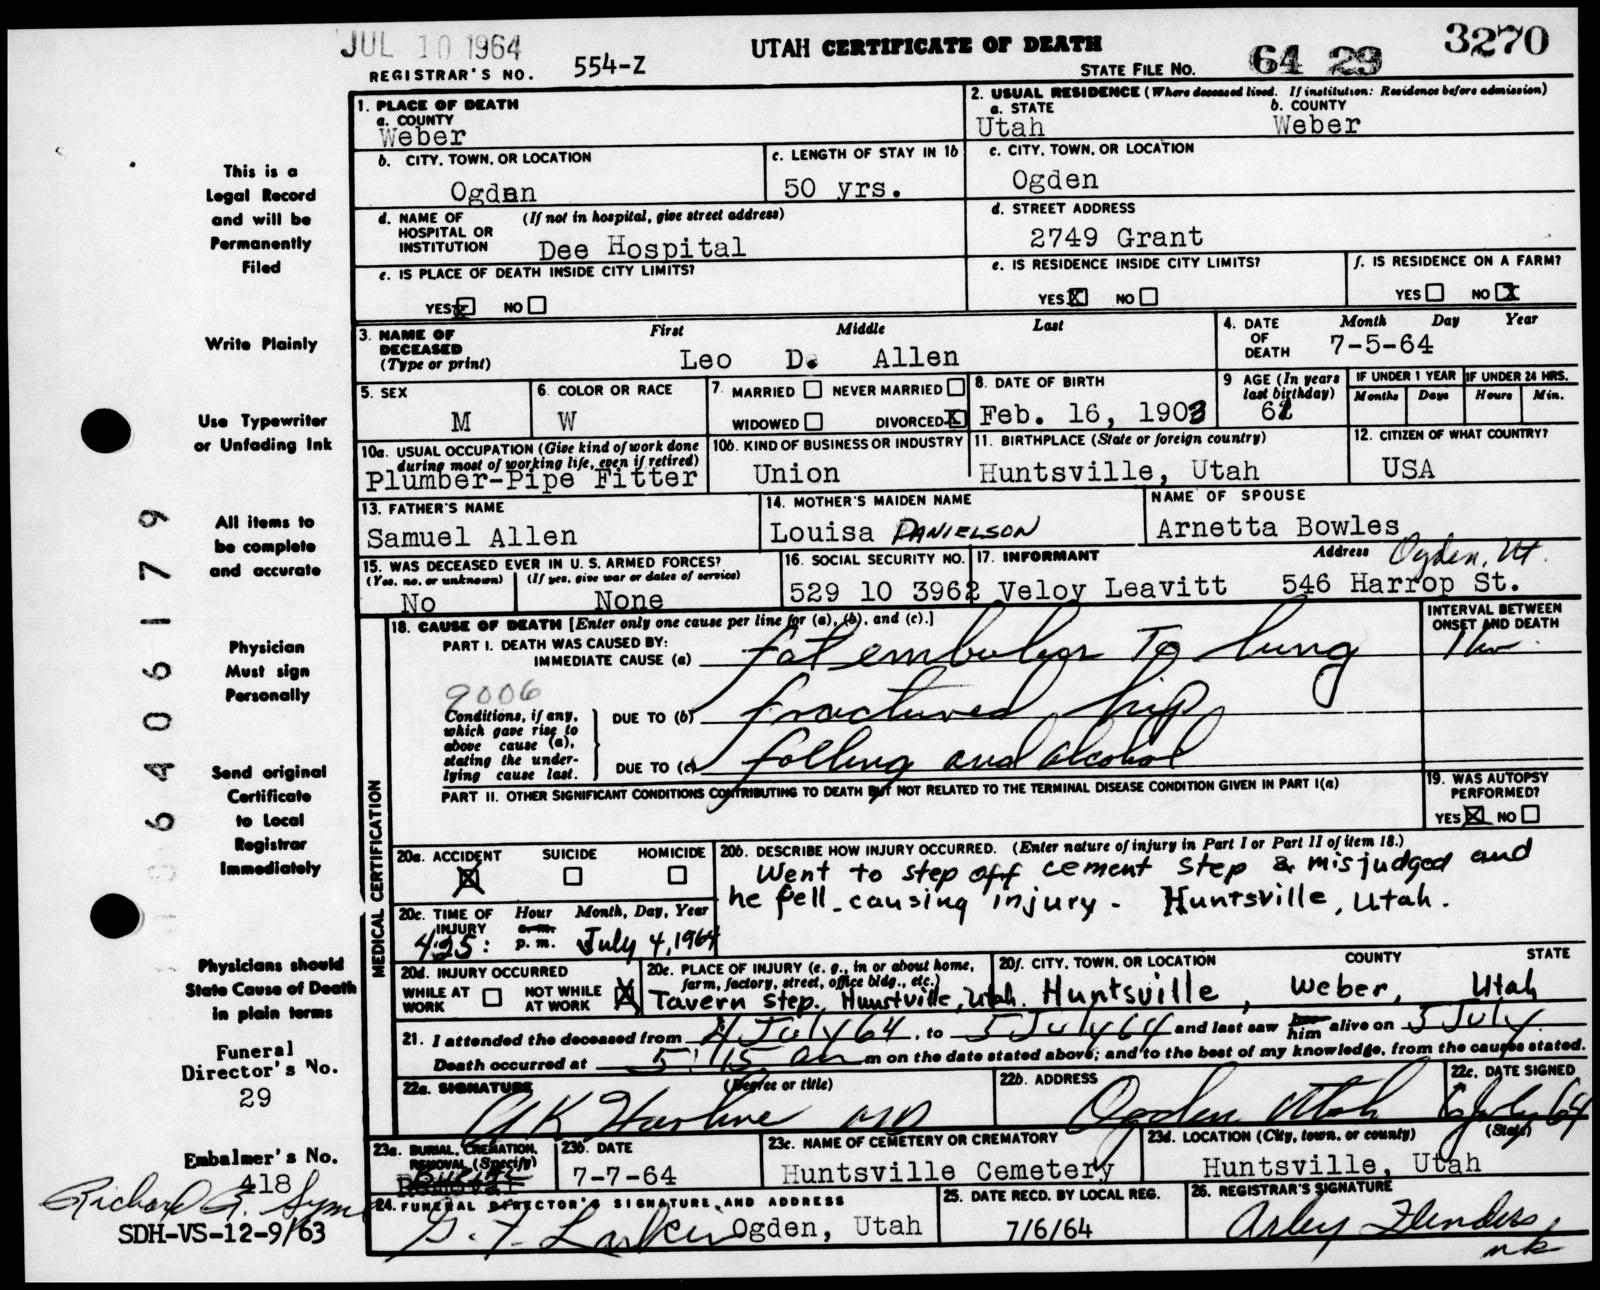 JUL 10 1964
UTAH CERTIFICATE OF DEATH
3270
REGISTRAR'S NO. 554-Z
STATE FILE NO. 64 29
1. PLACE OF DEATH
a. COUNTY
Weber
2. USUAL RESIDENCE (Where deceased lived. If institution: Residence before admission)
a. STATE b. COUNTY
Utah Weber
b. CITY, TOWN, OR LOCATION
Ogden
c. LENGTH OF STAY IN 1b
50 yrs.
c. CITY, TOWN, OR LOCATION
Ogden
d. NAME OF HOSPITAL OR INSTITUTION (If not in hospital, give street address)
Dee Hospital
d. STREET ADDRESS
2749 Grant
e. IS PLACE OF DEATH INSIDE CITY LIMITS?
YES X NO
e. IS RESIDENCE INSIDE CITY LIMITS?
YES X NO
f. IS RESIDENCE ON A FARM?
YES NO X
3. NAME OF DECEASED (Type or print)
First Middle Last
Leo D. Allen
4. DATE OF DEATH
Month Day Year
7-5-64
5. SEX
M
6. COLOR OR RACE
W
7. MARRIED NEVER MARRIED
WIDOWED DIVORCED X
8. DATE OF BIRTH
Feb. 16, 1903
9 AGE (In years last birthday)
61
IF UNDER 1 YEAR IF UNDER 24 HRS.
Months Days Hours Min.
10a. USUAL OCCUPATION (Give kind of work done during most of working life, even if retired)
Plumber-Pipe Fitter
10b. KIND OF BUSINESS OR INDUSTRY
Union
11. BIRTHPLACE (State or foreign country)
Huntsville, Utah
12. CITIZEN OF WHAT COUNTRY?
USA
13. FATHER'S NAME
Samuel Allen
14. MOTHER'S MAIDEN NAME
Louisa DANIELSON
NAME OF SPOUSE
Arnetta Bowles
15. WAS DECEASED EVER IN U. S. ARMED FORCES?
(Yes, no, or unknown) (If yes, give war or dates of service)
No None
16. SOCIAL SECURITY NO.
529 10 3962
17. INFORMANT Address
Ogden, Ut.
Veloy Leavitt 546 Harrop St.
18. CAUSE OF DEATH [Enter only one cause per line for (a), (b), and (c).]
INTERVAL BETWEEN ONSET AND DEATH
PART I. DEATH WAS CAUSED BY:
IMMEDIATE CAUSE (a) fat embolus To lung
9006
Conditions, if any, which gave rise to above cause (a), stating the underlying cause last.
DUE TO (b) fractured hip
DUE TO (c) falling and alcohol
PART II. OTHER SIGNIFICANT CONDITIONS CONTRIBUTING TO DEATH BUT NOT RELATED TO THE TERMINAL DISEASE CONDITION GIVEN IN PART I(a)
19. WAS AUTOPSY PERFORMED?
YES X NO
MEDICAL CERTIFICATION
20a. ACCIDENT SUICIDE HOMICIDE
X
20b. DESCRIBE HOW INJURY OCCURRED. (Enter nature of injury in Part I or Part II of item 18.)
Went to step off cement step & misjudged and
he fell - causing injury - Huntsville, Utah.
20c. TIME OF INJURY
Hour Month, Day, Year
4:25: a.m. p.m. July 4, 1964
20d. INJURY OCCURRED
WHILE AT WORK NOT WHILE AT WORK X
20e. PLACE OF INJURY (e. g., in or about home, farm, factory, street, office bldg., etc.)
Tavern Step. Huntsville, Utah.
20f. CITY, TOWN, OR LOCATION COUNTY STATE
Huntsville, Weber, Utah
21. I attended the deceased from 4 July 64, to 5 July 64 and last saw her him alive on 5 July.
Death occurred at 5:15 am m on the date stated above; and to the best of my knowledge, from the causes stated.
22a. SIGNATURE (Degree or title)
MD
22b. ADDRESS
Ogden Utah
22c. DATE SIGNED
6 July 64
23a. BURIAL, CREMATION, REMOVAL (Specify)
Burial
Removal
23b. DATE
7-7-64
23c. NAME OF CEMETERY OR CREMATORY
Huntsville Cemetery
23d. LOCATION (City, town, or county) (State)
Huntsville, Utah
24. FUNERAL DIRECTOR'S SIGNATURE AND ADDRESS
G. F. Larkin Ogden, Utah
25. DATE RECD. BY LOCAL REG.
7/6/64
26. REGISTRAR'S SIGNATURE
Arley Flinders,
nk
This is a
Legal Record
and will be
Permanently
Filed
Write Plainly
Use Typewriter
or Unfading Ink
All items to
be complete
and accurate
Physician
Must sign
Personally
Send original
Certificate
to Local
Registrar
Immediately
Physicians should
State Cause of Death
in plain terms
Funeral
Director's No.
29
Embalmer's No.
418
Richard R.
SDH-VS-12-9/63
6406179